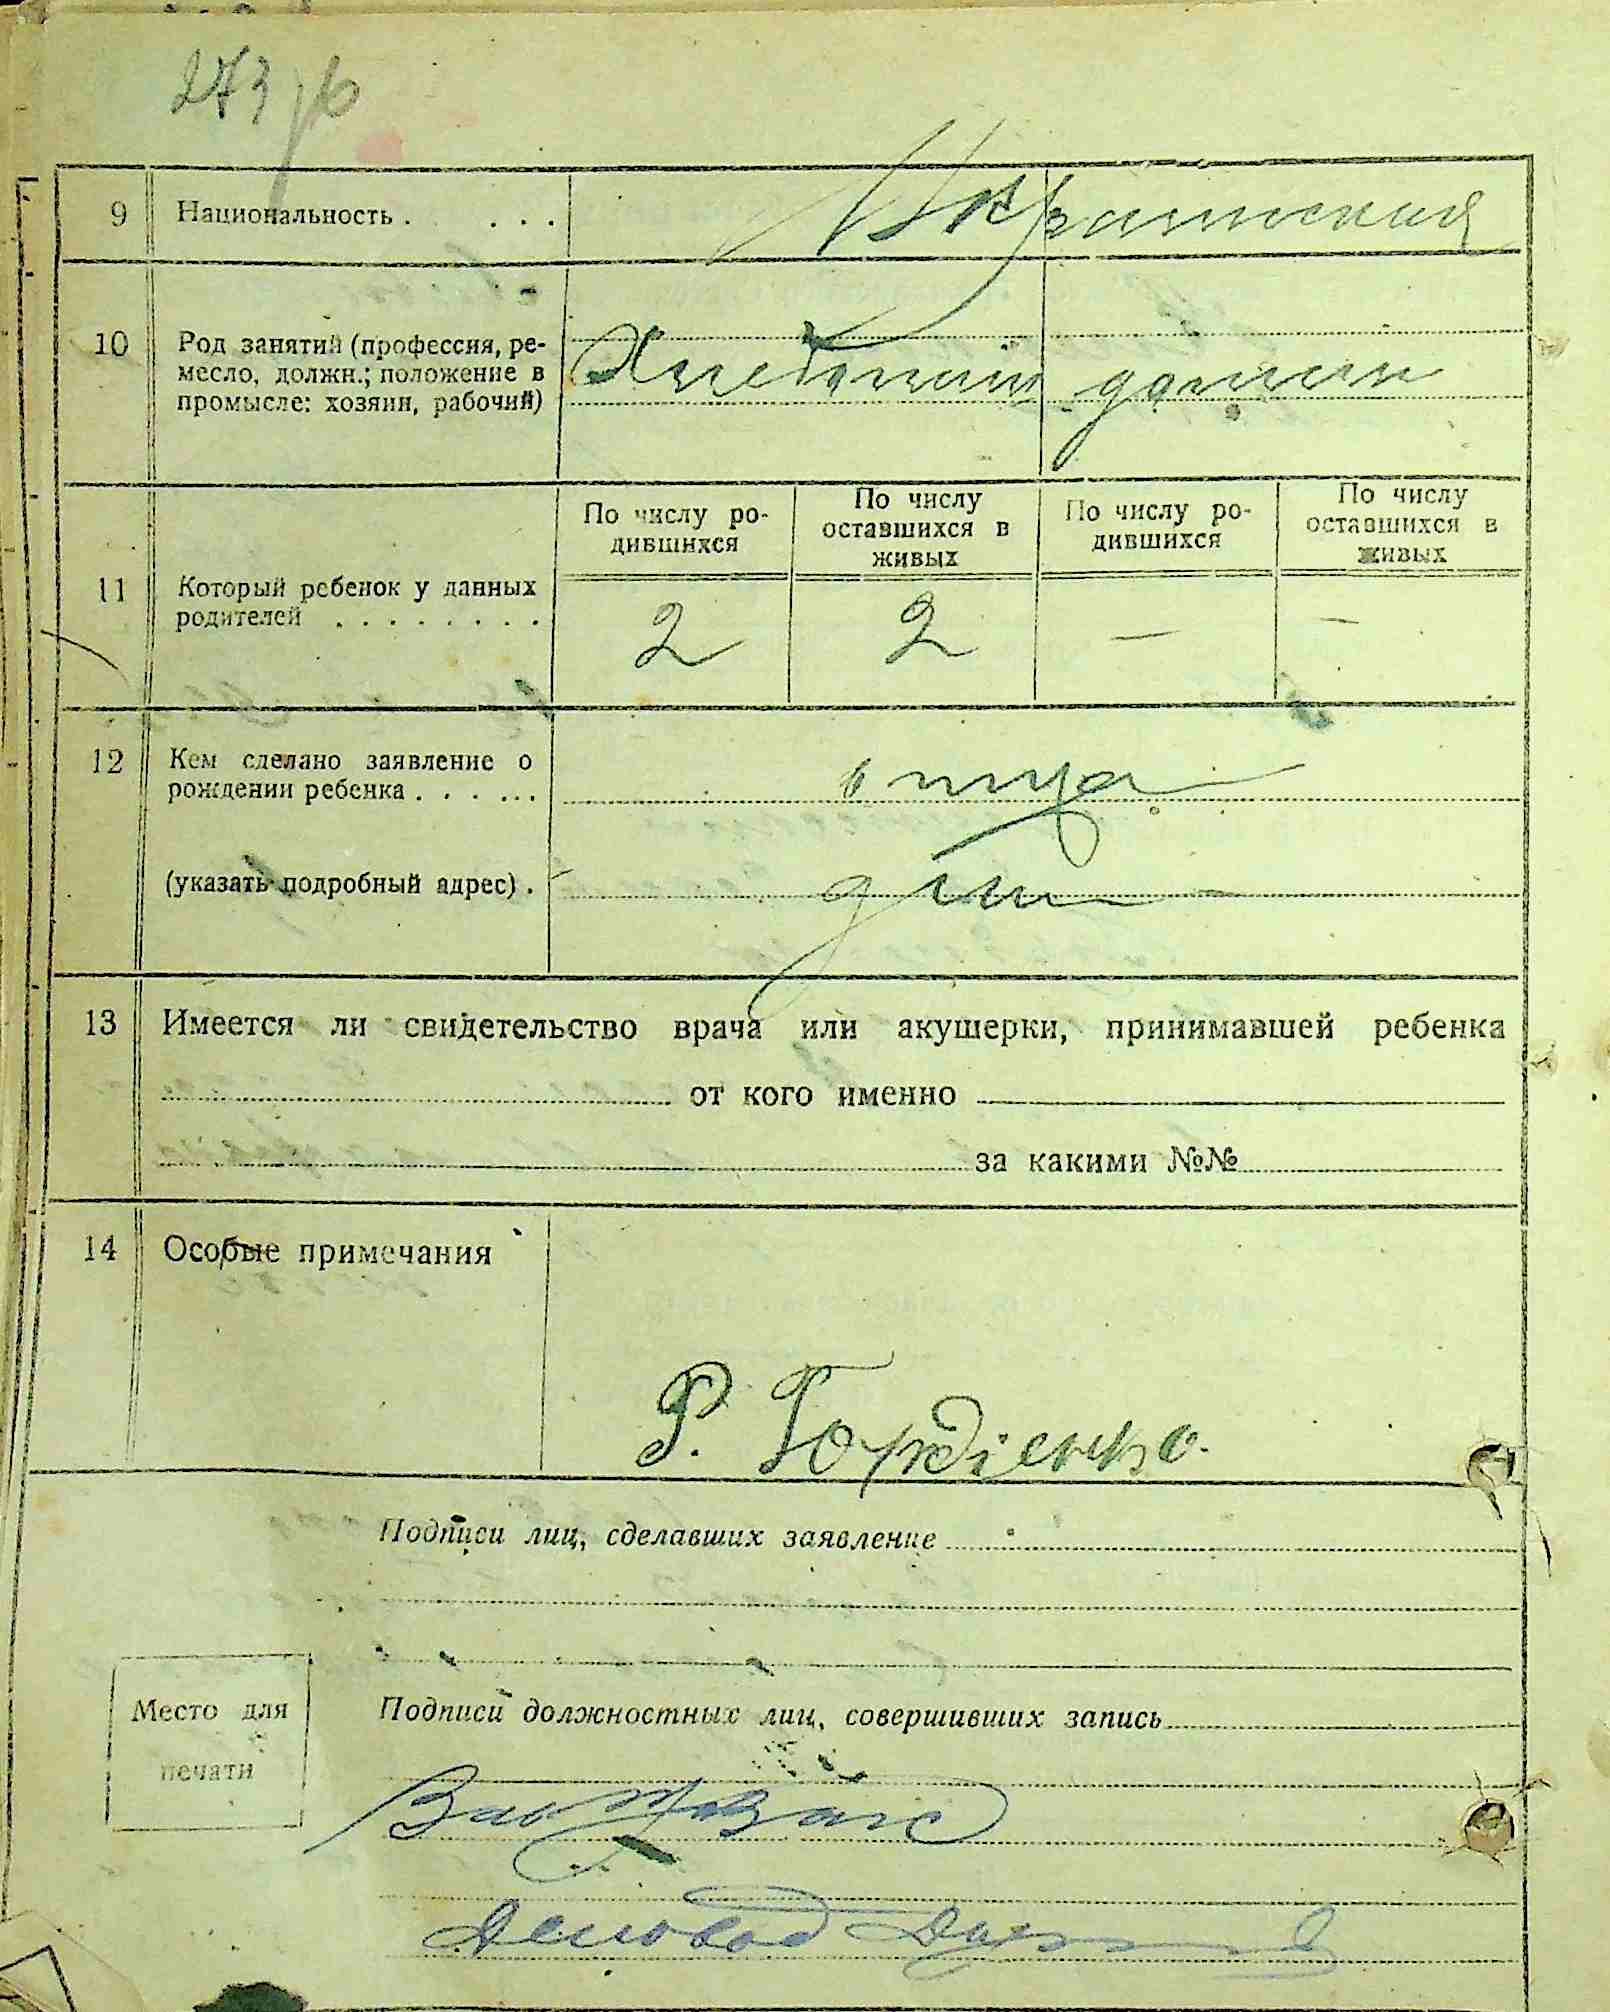 273
9 Национальность . . . . Украинская
10 Род занятий (профессия, ре-
месло, должн.; положение в
промысле: хозяин, рабочий)
По числу ро-
дившихся
По числу
оставшихся в
живых
По числу ро-
дившихся
По числу
оставшихся в
живых
11 Который ребенок у данных
родителей . . . . . . . .
2 2 — —
12 Кем сделано заявление о
рождении ребенка . . . . . .
(указать подробный адрес) .
13 Имеется ли свидетельство врача или акушерки, принимавшей ребенка
от кого именно
за какими №№
14 Особые примечания
Р. Гордіенко.
Подписи лиц, сделавших заявление
Место для
печати
Подписи должностных лиц, совершивших запись
Зав
Деловод